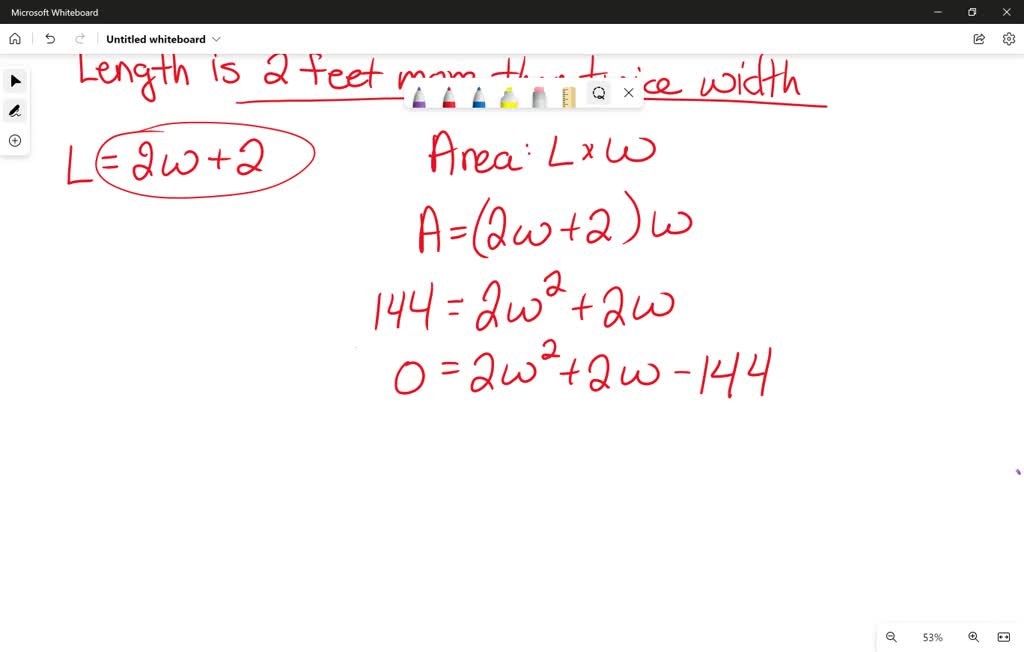 Microsoft Whiteboard
Untitled whiteboard
Length is 2 feet width
L = 2w + 2
Area: L x w
A = (2w + 2) w
144 = 2w² + 2w
0 = 2w² + 2w - 144
53%